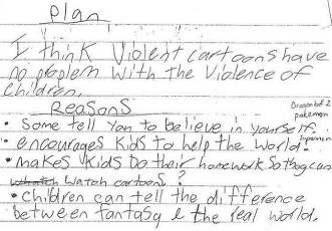 Plan
I think Violent cartoons have
no ploplem with the Violence of
children.
Reasons
Dragonball Z
pakemon
• Some tell you to believe in yourself.
• encourages kids to help the World!
• makes kids Do their homework So they can
watch cartoons?
• children can tell the difference
between fantasy & the real world.